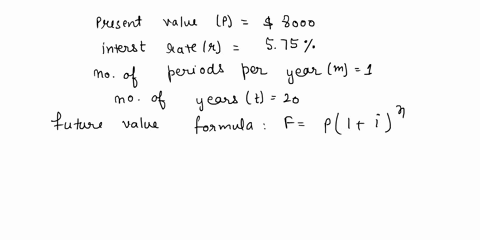 Present value (P) = $ 8000
interst rate (r) = 5.75 %
no. of periods per year (m) = 1
no. of years (t) = 20
future value formula : F = P(1 + i)^n